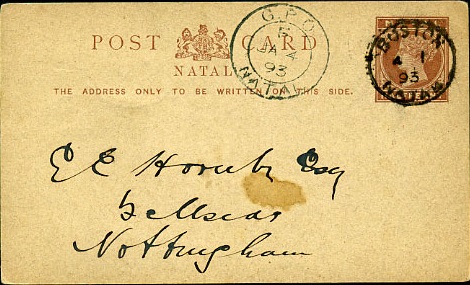 POST CARD
NATAL
THE ADDRESS ONLY TO BE WRITTEN ON THIS SIDE.
G.P.O.
JA 4
93
NATAL
BOSTON
4 1
93
NATAL
E E Hornby Esq
Nottingham